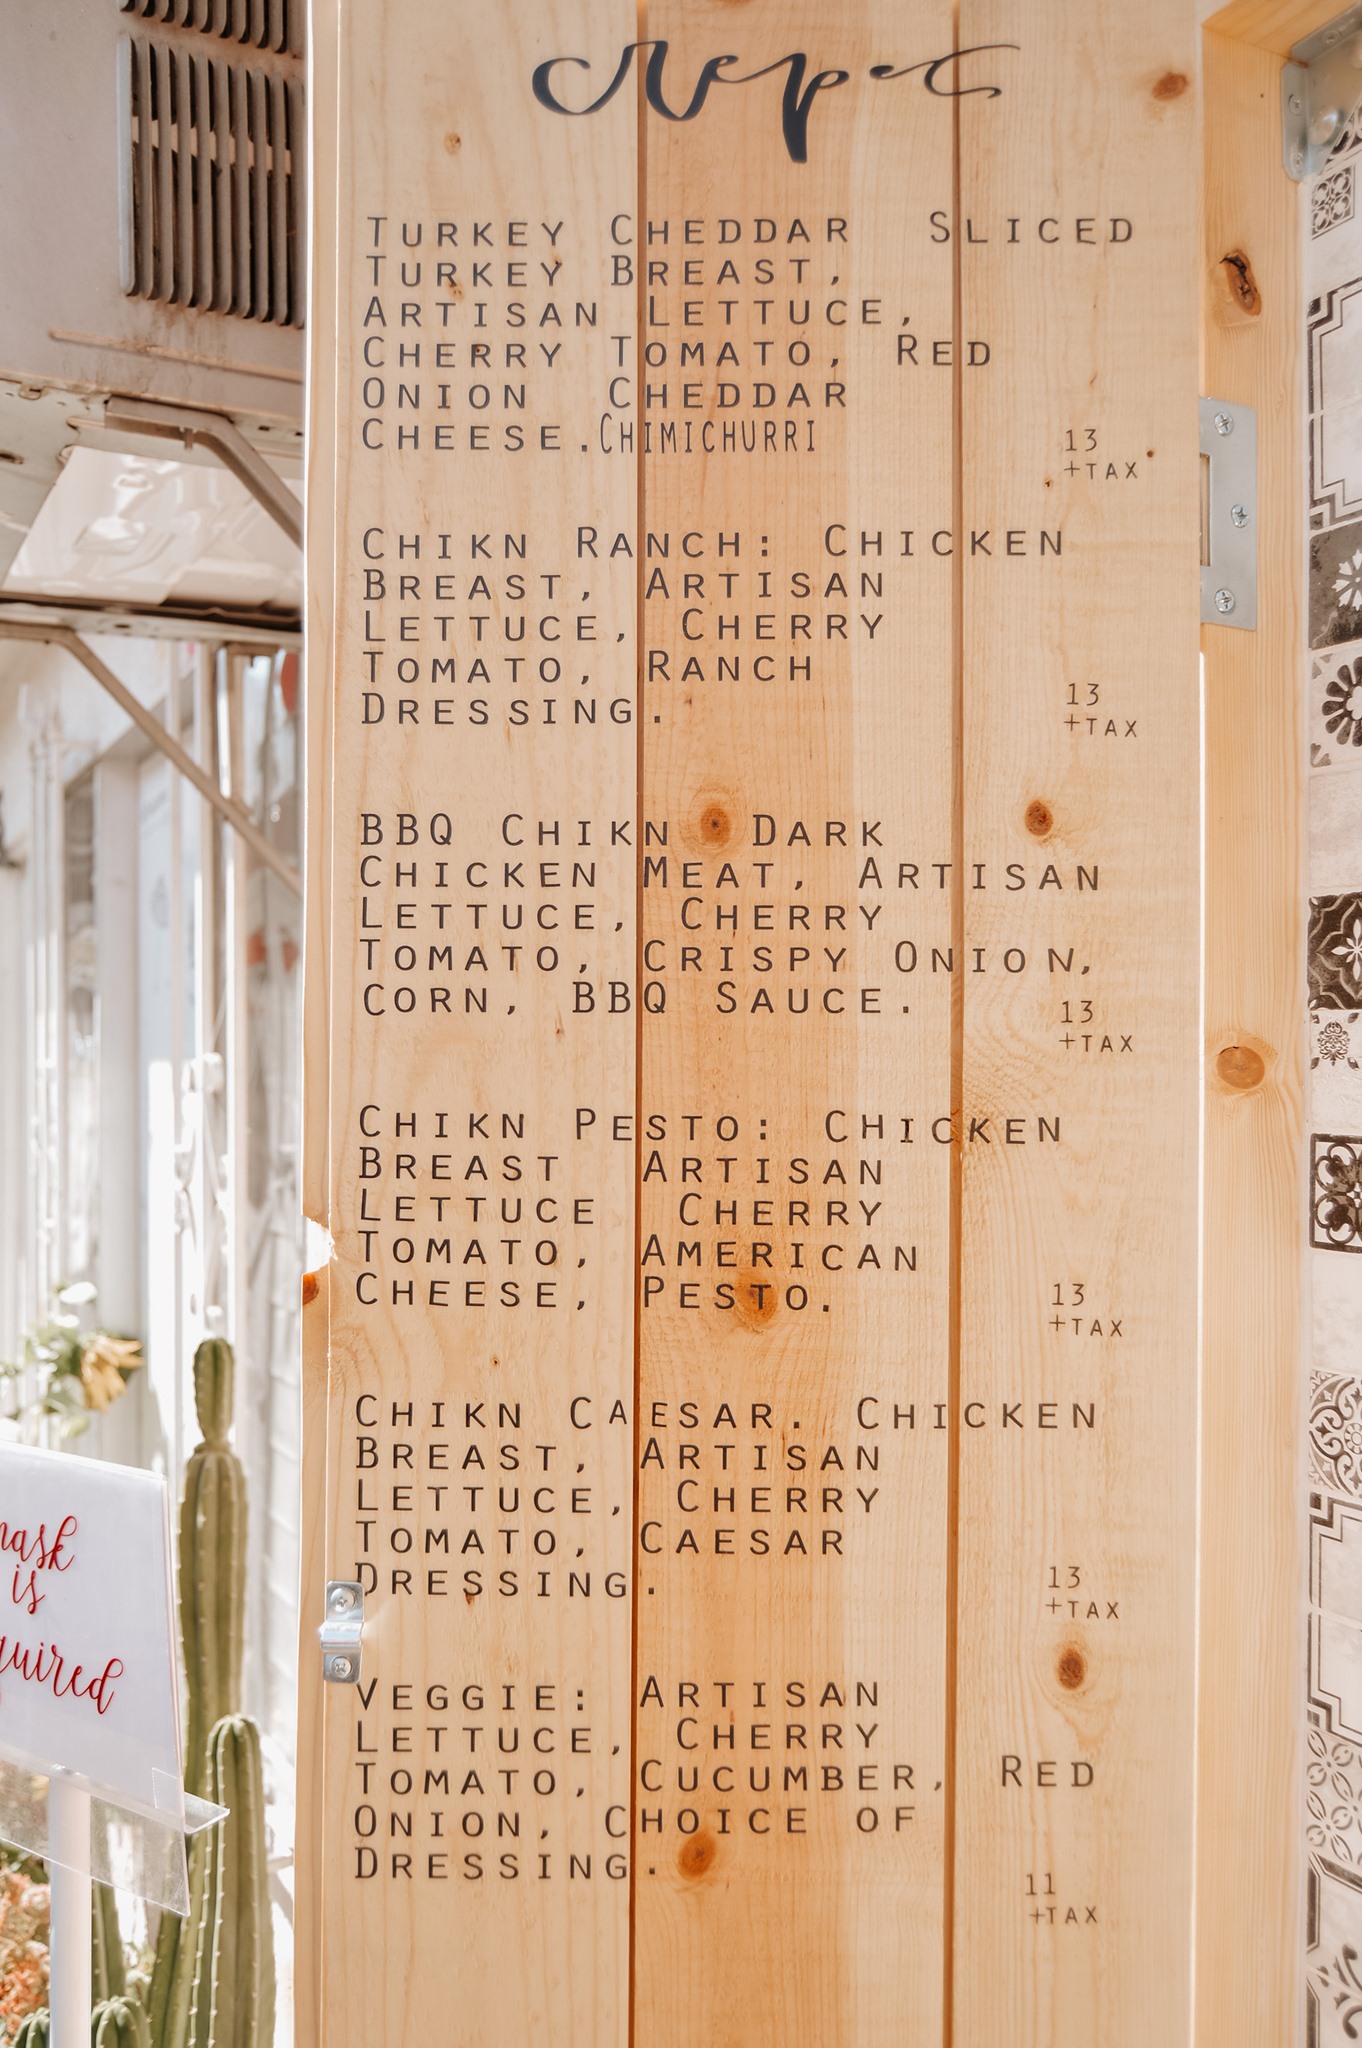 crepes
Turkey Cheddar Sliced
Turkey Breast,
Artisan Lettuce,
Cherry Tomato, Red
Onion Cheddar
Cheese. Chimichurri
13
+TAX
Chikn Ranch: Chicken
Breast, Artisan
Lettuce, Cherry
Tomato, Ranch
Dressing.
13
+TAX
BBQ Chikn Dark
Chicken Meat, Artisan
Lettuce, Cherry
Tomato, Crispy Onion,
Corn, BBQ Sauce.
13
+TAX
Chikn Pesto: Chicken
Breast Artisan
Lettuce Cherry
Tomato, American
Cheese, Pesto.
13
+TAX
Chikn Caesar. Chicken
Breast, Artisan
Lettuce, Cherry
Tomato, Caesar
Dressing.
13
+TAX
Veggie: Artisan
Lettuce, Cherry
Tomato, Cucumber, Red
Onion, Choice of
Dressing.
11
+TAX
mask
is
quired